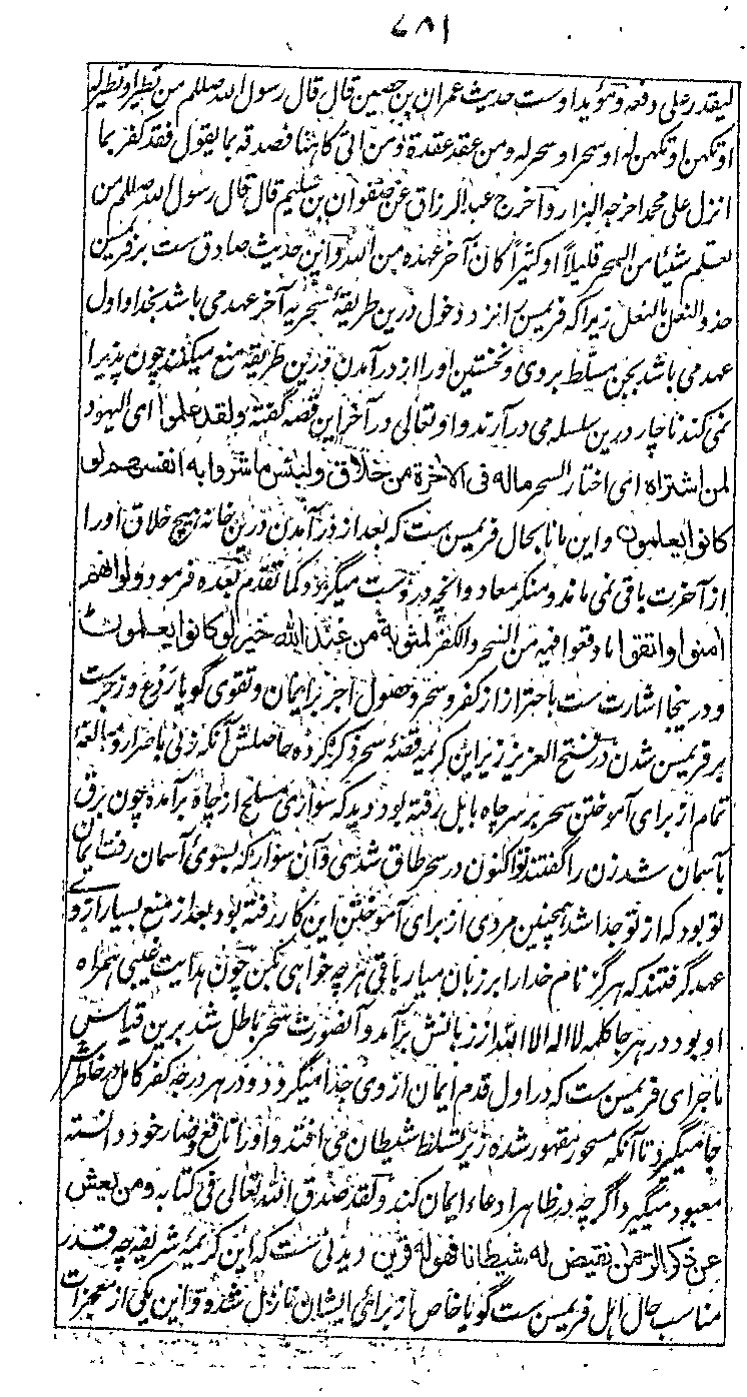 ۷۸۱
لیقدر علی دفعه و مؤید اوست حدیث عمران بن حصین قال قال رسول الله صللم من تطیر او تطیر له
او تکهن او تکهن له او سحر او سحر له و من عقد عقدة و من اتی کاهنا فصدقه بما یقول فقد کفر بما
انزل علی محمد اخرجه البزار و اخرج عبد الرزاق عن صفوان بن سلیم قال قال رسول الله صللم من
تعلم شیئا من السحر قلیلاً او کثیراً کان آخر عهده من الله و این حدیث صادق ست بر فریمیسن
حذو النعل بالنعل زیرا که فریمیسن را نزد دخول درین طریقهٔ سحریه آخر عهد می باشد بخدا و اول
عهد می باشد بجن مسلط بروی و نخستین او را از در آمدن درین طریقه منع میکنند چون پذیرا
نمی کند ناچار درین سلسله می در آرند و او تعالی در آخر این قصه گفته ولقد علموا ای الیهود
لمن اشتراه ای اختار السحر ماله فی الاخرة من خلاق ولبئس ما شروا به انفسهم لو
کانوا یعلمون و این مانا بحال فریمیسن ست که بعد از در آمدن درین خانه هیچ خلاق او را
از آخرت باقی نمی ماند و منکر معاد و انچه دروست میگردد کما تقدم بعده فرمود ولو انهم
امنوا واتقوا ما وقعوا فیه من السحر والکفر لمثوبة من عند الله خیر لو کانوا یعلمون
و درینجا اشارت ست باحتراز از کفر و سحر و حصول اجر بر ایمان و تقوی گویا ردع و زجرست
بر فریمیسن شدن در فتح العزیز زیر این کریمه قصهٔ سحر ذکر کرده حاصلش آنکه زنی باصرار و مبالغهٔ
تمام از برای آموختن سحر بر سر چاه بابل رفته بود دید که سواری مسلح از چاه برآمده چون برق
بآسمان شد زن را گفتند تو اکنون در سحر طاق شدی و آن سوار که بسوی آسمان رفت ایمان
تو بود که از تو جدا شد همچنین مردی از برای آموختن این کار رفته بود بعد از منع بسیار ازوے
عهد گرفتند که هرگز نام خدا را بر زبان میار باقی هر چه خواهی بکن چون هدایت غیبی همراه
او بود در هر جا کلمه لا اله الا الله از زبانش برآمد و آنصورت سحر باطل شد برین قیاس
ماجرای فریمیسن ست که در اول قدم ایمان از وی جدا میگردد و در هر درجه کفر کامل در خاطرش
جا میگیرد تا آنکه مسحور مقهور شده زیر تسلط شیطان می افتد و او را نافع و ضار خود دانسته
معبود میگیرد اگر چه در ظاهر ادعاء ایمان کند ولقد صدق الله تعالی فی کتابه ومن یعش
عن ذکر الرحمن نقیض له شیطانا فهو له قرین دیدنی ست که این کریمهٔ شریفه چه قدر
مناسب حال اهل فریمیسن ست گویا خاص از برای ایشان نازل شده و این یکی از معجزات